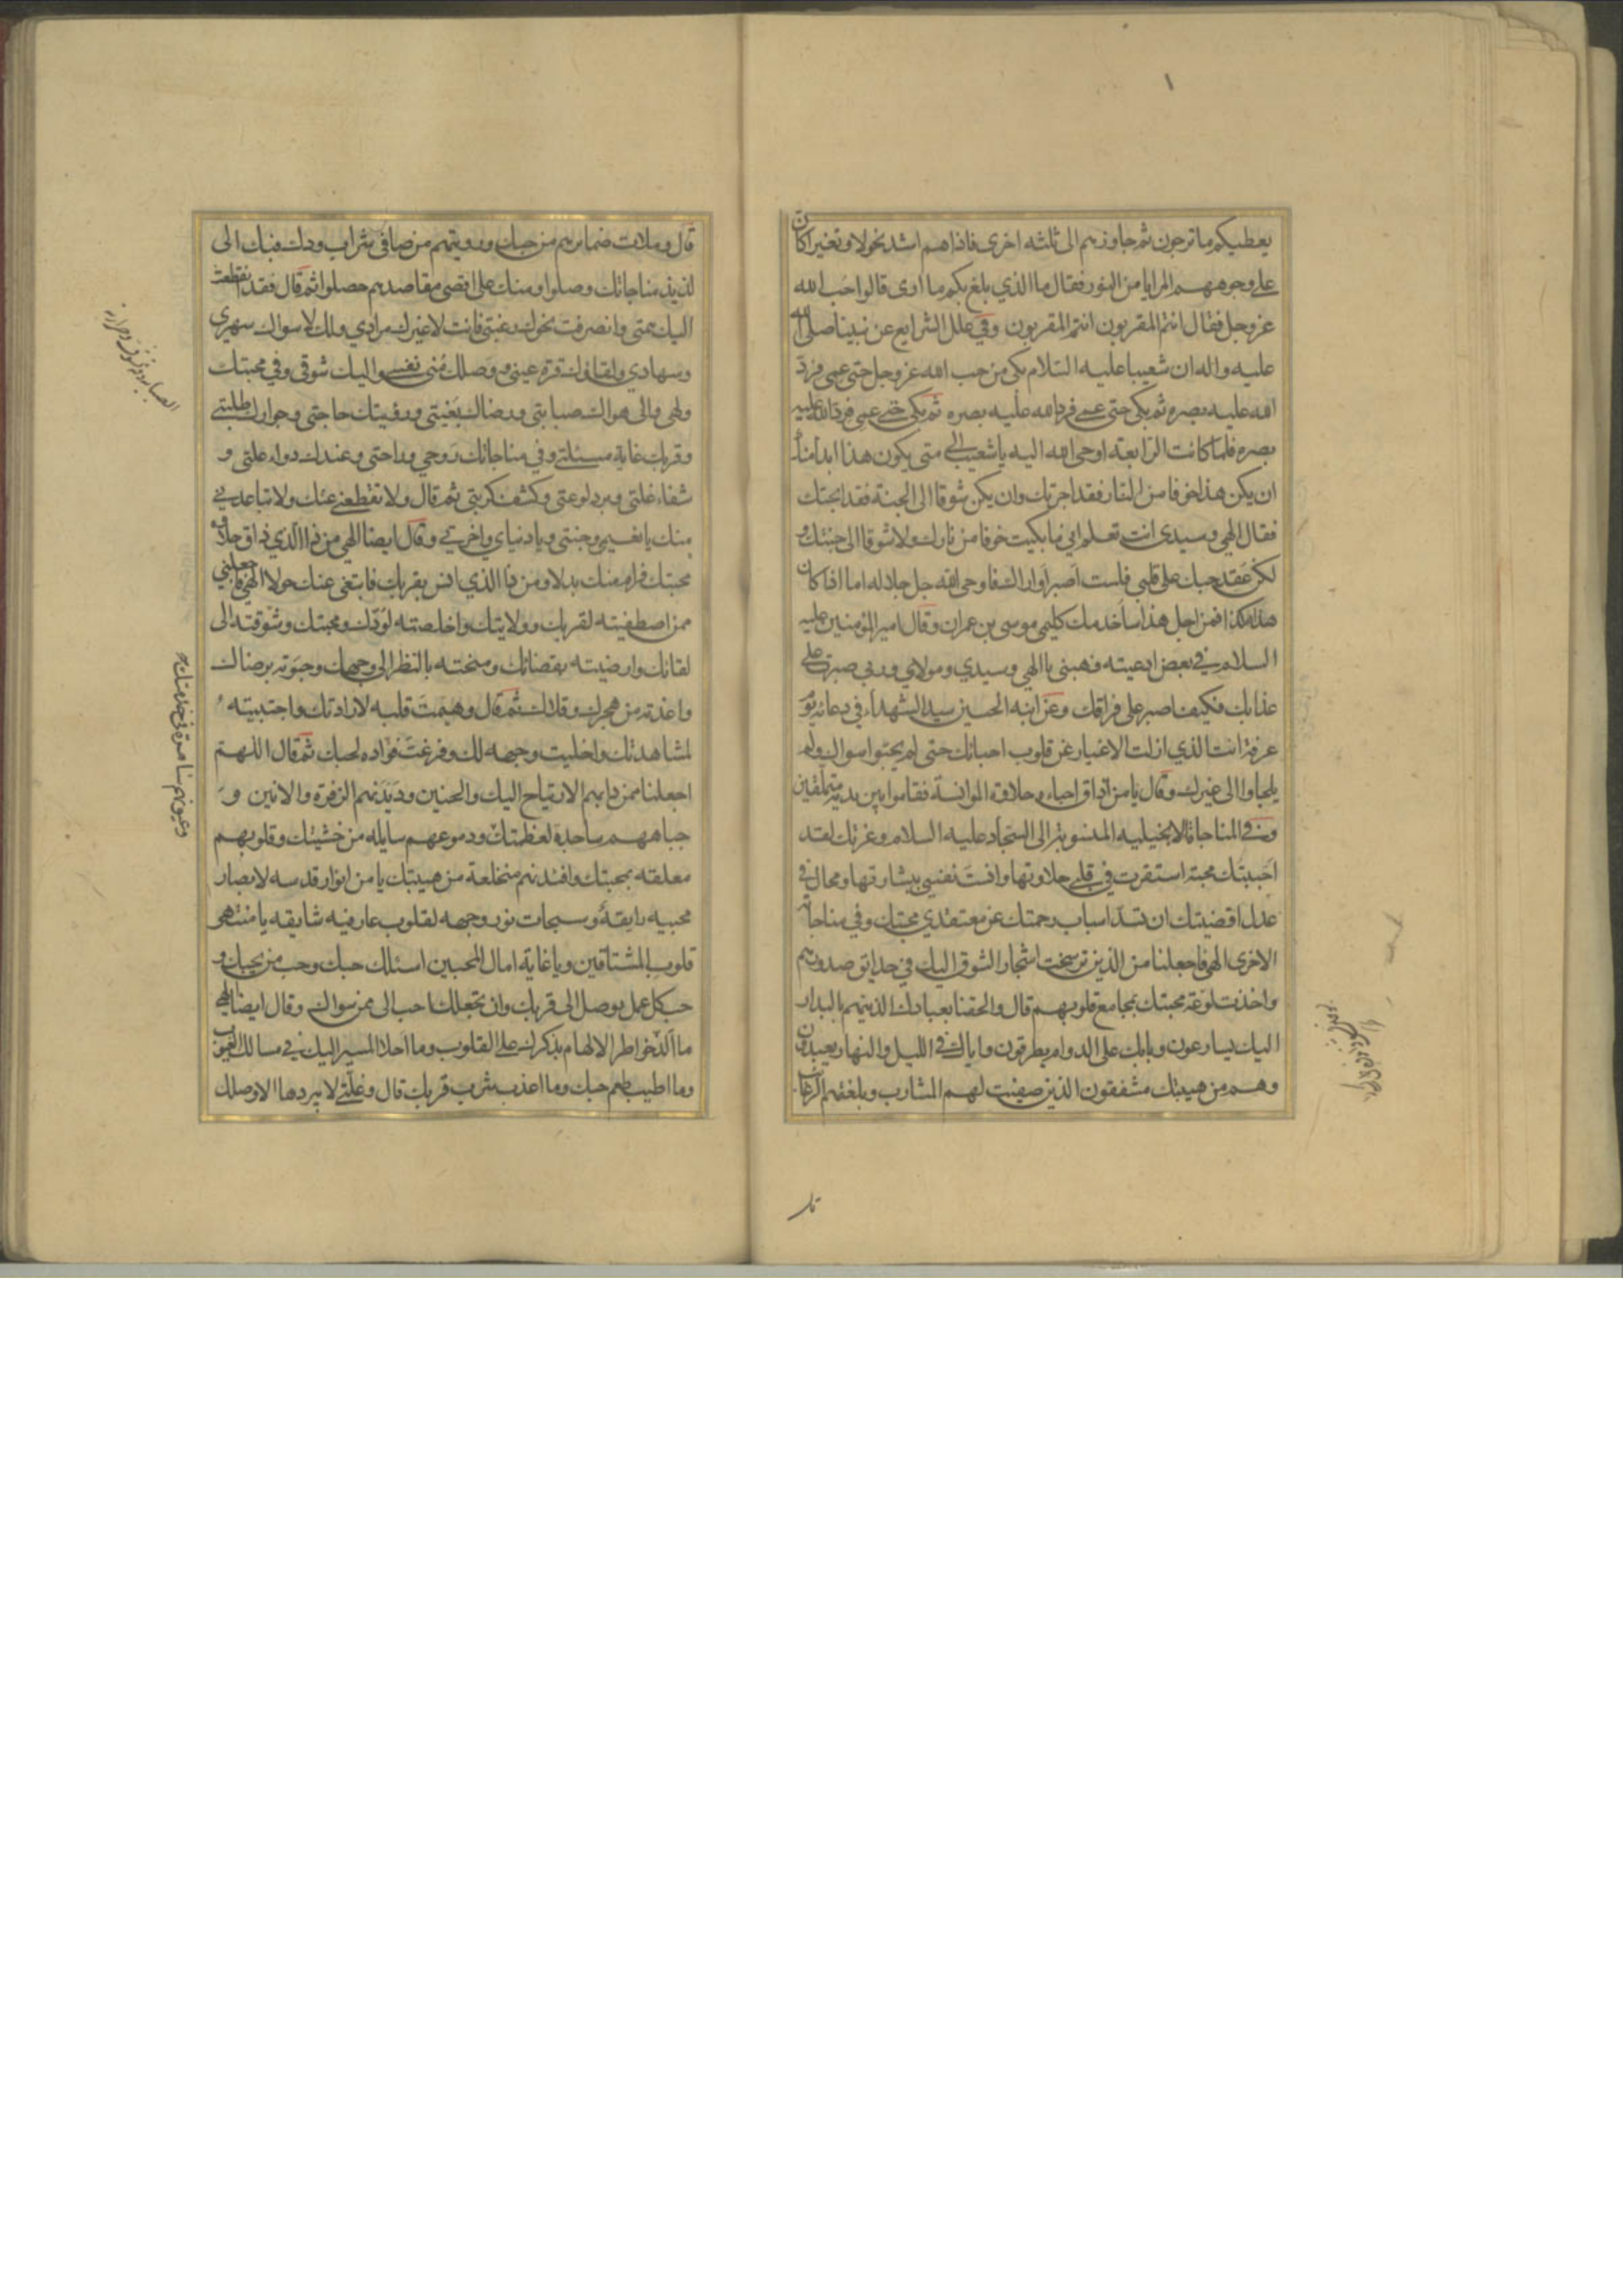 يعطيكم ما ترجون ثم جاوزهم الى ثلثه اخرى فاذاهم اشد نحولا وتغيرا كان
على وجوههم المرايا من النور فقال ما الذي بلغ بكم ما ارى قالوا حب الله
عز وجل فقال انتم المقربون انتم المقربون وفي علل الشرايع عن نبينا صلى الله
عليه واله ان شعيبا عليه السلام بكى من حب الله عز وجل حتى عمى فرد
الله عليه بصره ثم بكى حتى عمى فرد الله عليه بصره ثم بكى حتى عمى فرد الله عليه
بصره فلما كانت الرابعة اوحى الله اليه يا شعيب الى متى يكون هذا ابدا منك
ان يكن هذا خوفا من النار فقد اجرتك وان يكن شوقا الى الجنة فقد ابحتك
فقال الهي وسيدي انت تعلم اني ما بكيت خوفا من نارك ولا شوقا الى جنتك و
لكن عقد حبك على قلبي فلست اصبر او اراك فاوحى الله جل جلاله اما اذا كان
هذا هكذا فمن اجل هذا ساخدمك كليمي موسى بن عمران وقال امير المؤمنين عليه
السلام في بعض ادعيته فهبني يا الهي وسيدي ومولاي وربي صبرت على
عذابك فكيف اصبر على فراقك وعن ابنه الحسين سيد الشهداء في دعائه يوم
عرفة انت الذي ازلت الاغيار عن قلوب احبائك حتى لم يحبوا سواك ولم
يلجاوا الى غيرك وقال يا من اذاق احباءه حلاوة الموانسة فقاموا بين يديه متملقين
وفي المناجاة الانجيليه المنسوبة الى السجاد عليه السلام وعزتك لقد
احببتك محبة استقرت في قلبي حلاوتها وانست نفسي ببشارتها ومحال في
عدل اقضيتك ان تسد اسباب رحمتك عن معتقدي محبتك وفي مناجاته
الاخرى الهي فاجعلنا من الذين ترسخت اشجار الشوق اليك في حدائق صدورهم
واخذت لوعة محبتك بمجامع قلوبهم قال والحقنا بعبادك الذين هم بالبدار
اليك يسارعون وبابك على الدوام يطرقون واياك في الليل والنهار يعبدون
وهم من هيبتك مشفقون الذين صفيت لهم المشارب وبلغتهم الرغائب
قال وملات ضمايرهم من حبك ورويتهم من صافي شراب ودك فبك الى
لذيذ مناجاتك وصلوا ومنك على اقصى مقاصدهم حصلوا ثم قال فقد انقطعت
اليك همتي وانصرفت نحوك رغبتي فانت لا غيرك مرادي ولك لا سواك سهري
وسهادي ولقاؤك قرة عيني ووصلك منى نفسي واليك شوقي وفي محبتك
ولهي والى هواك صبابتي ورضاك بغيتي ورؤيتك حاجتي وجوارك طلبتي
وقربك غاية مسئلتي وفي مناجاتك روحي وراحتي وعندك دواء علتي و
شفاء غلتي وبرد لوعتي وكشف كربتي ثم قال ولا تقطعني عنك ولا تباعدني
منك يا نعيمي وجنتي ويا دنياي واخرتي وقال ايضا الهي من ذا الذي ذاق حلاوة
محبتك فرام منك بدلا ومن ذا الذي انس بقربك فابتغى عنك حولا الهي فاجعلني
ممن اصطفيته لقربك وولايتك واخلصته لودك ومحبتك وشوقته الى
لقائك وارضيته بقضائك ومنحته بالنظر الى وجهك وحبوته برضاك
واعذته من هجرك وقلاك ثم قال وهيمت قلبه لارادتك واجتبيته
لمشاهدتك واخليت وجهه لك وفرغت فؤاده لحبك ثم قال اللهم
اجعلنا ممن دابهم الارتياح اليك والحنين وديدنهم الزفرة والانين و
جباههم ساجدة لعظمتك ودموعهم سايله من خشيتك وقلوبهم
معلقه بمحبتك وافئدتهم منخلعة من هيبتك يا من انوار قدسه لابصار
محبيه رايقة وسبحات نور وجهه لقلوب عارفيه شايقه يا منتهى
قلوب المشتاقين ويا غاية امال المحبين اسئلك حبك وحب من يحبك و
حب كل عمل يوصل الى قربك وان تجعلك احب الى ممن سواك وقال ايضا الهي
ما الذ خواطر الالهام بذكرك على القلوب وما احلا المسير اليك في مسالك الغيوب
وما اطيب طعم حبك وما اعذب شرب قربك قال وغلتي لا يبردها الا وصلك
وعيونهم ساهرة في خدمتك